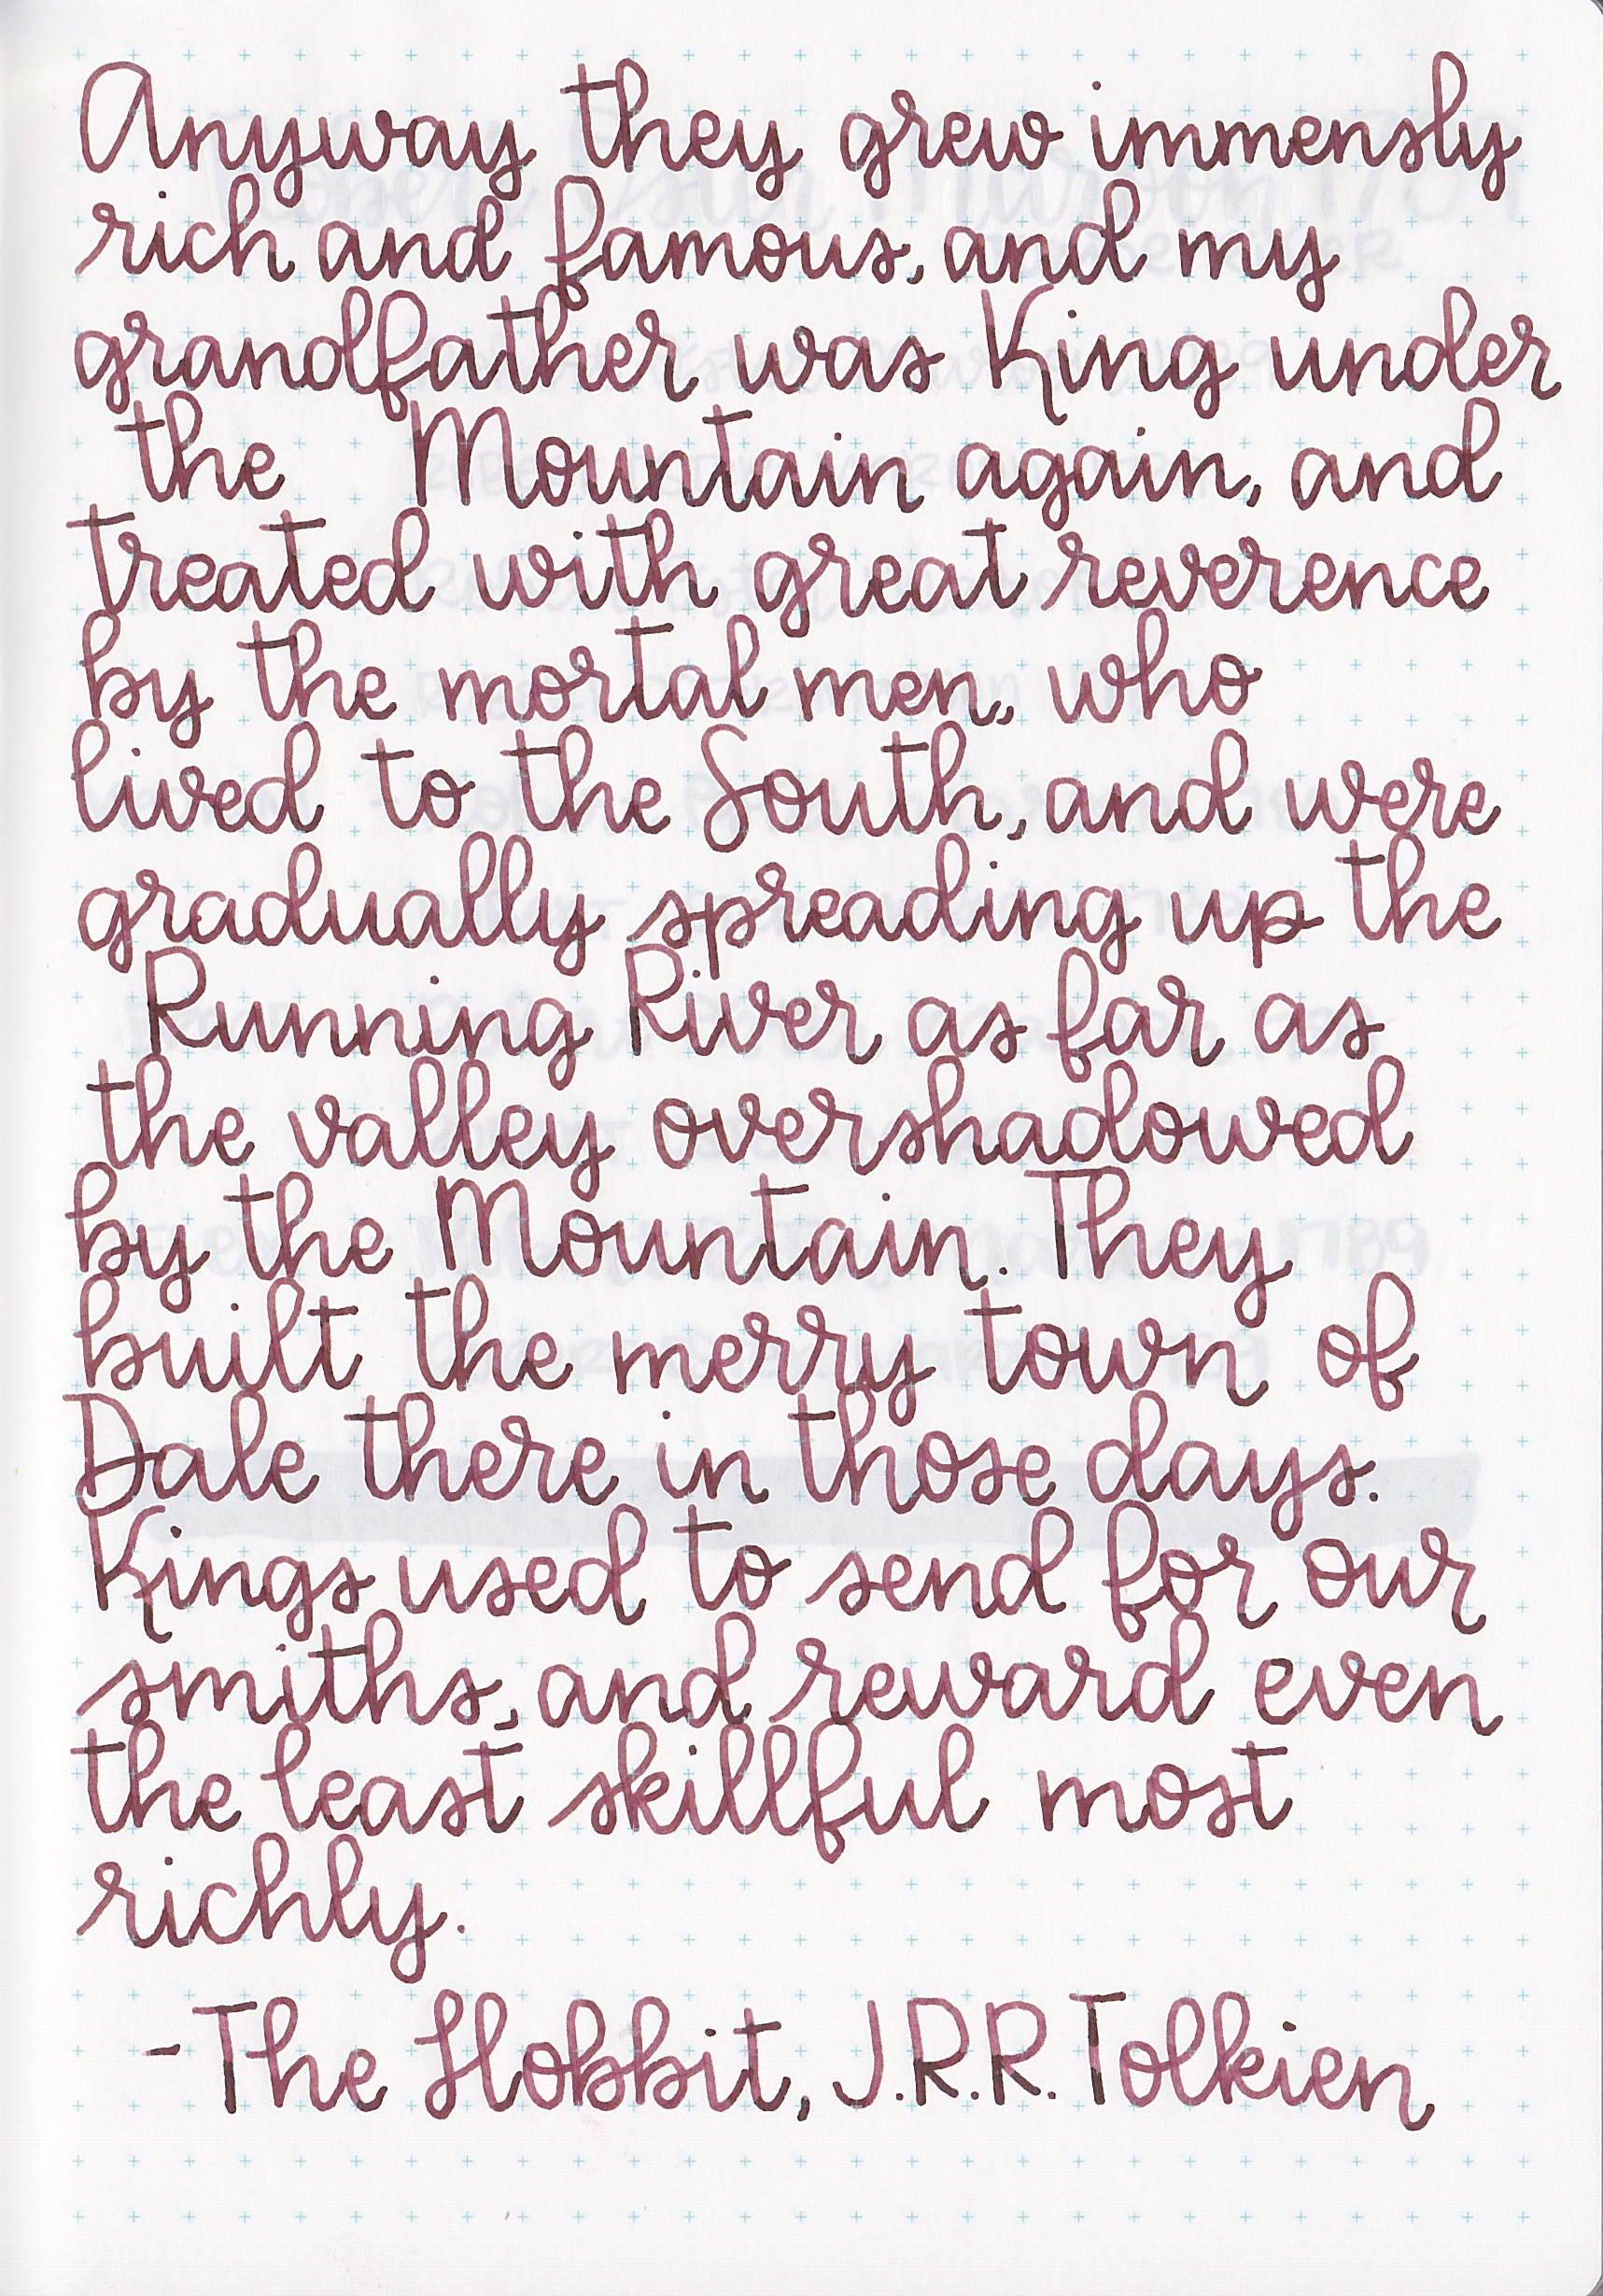 Anyway they grew immensly
rich and famous, and my
grandfather was King under
the Mountain again, and
treated with great reverence
by the mortal men, who
lived to the South, and were
gradually spreading up the
Running River as far as
the valley overshadowed
by the Mountain. They
built the merry town of
Dale there in those days.
Kings used to send for our
smiths, and reward even
the least skillful most
richly.
-The Hobbit, J.R.R. Tolkien